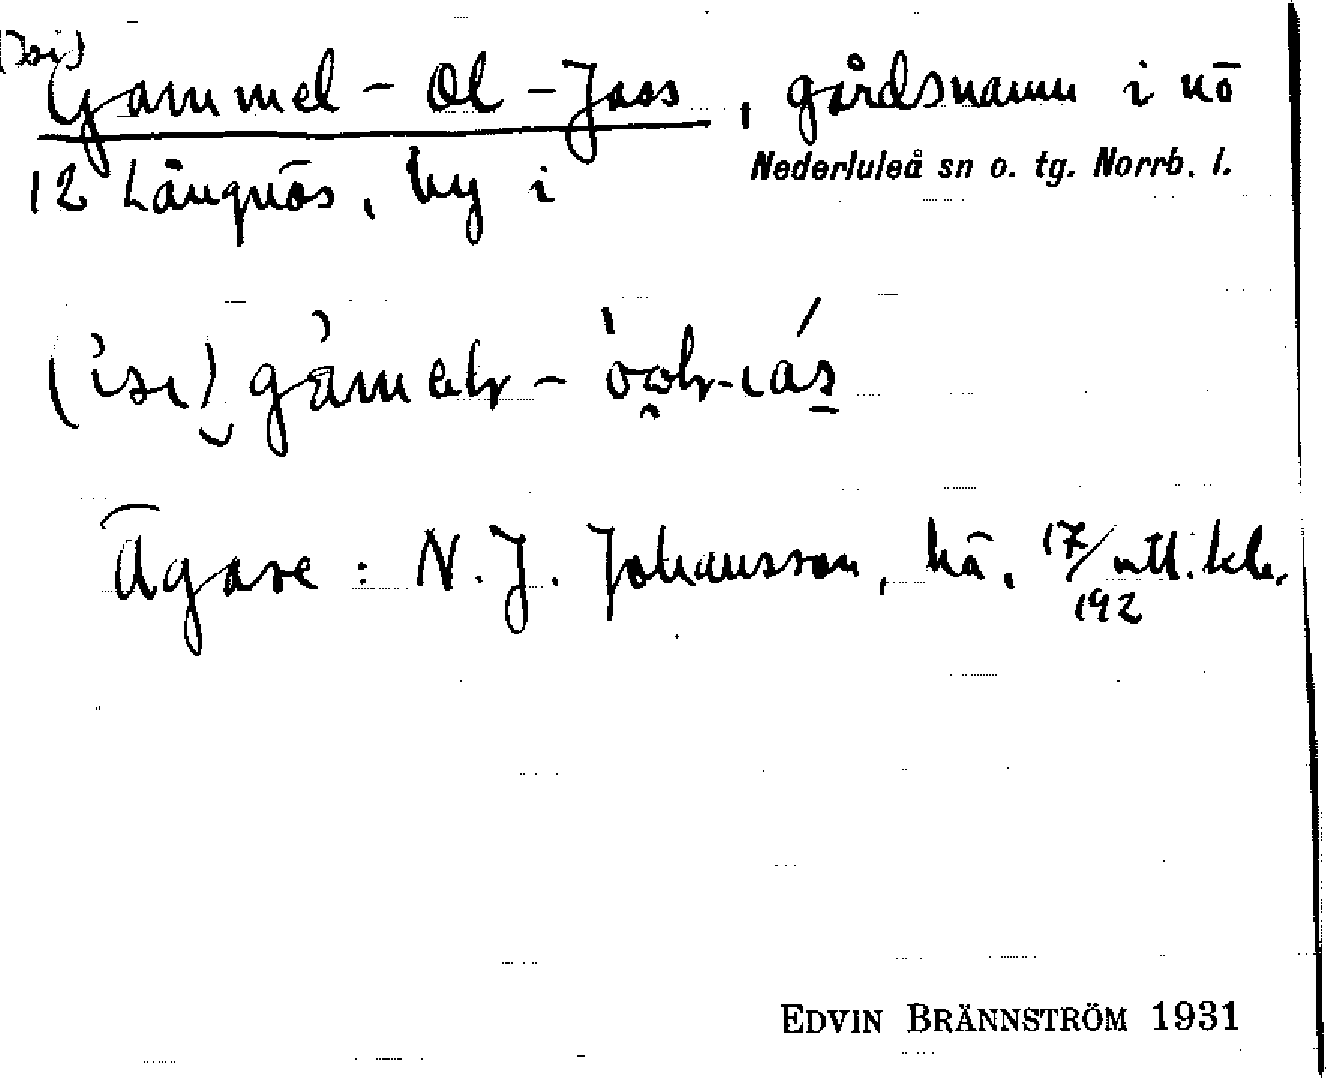 Gammel-Ol-Jass, gårdsnamn i nō
12 Långnäs, by i Nederluleå sn o. tg. Norrb. l.
Ägare: N. J. Johansson, hā. 17/192 mtl. kb.
EDVIN BRÄNNSTRÖM 1931